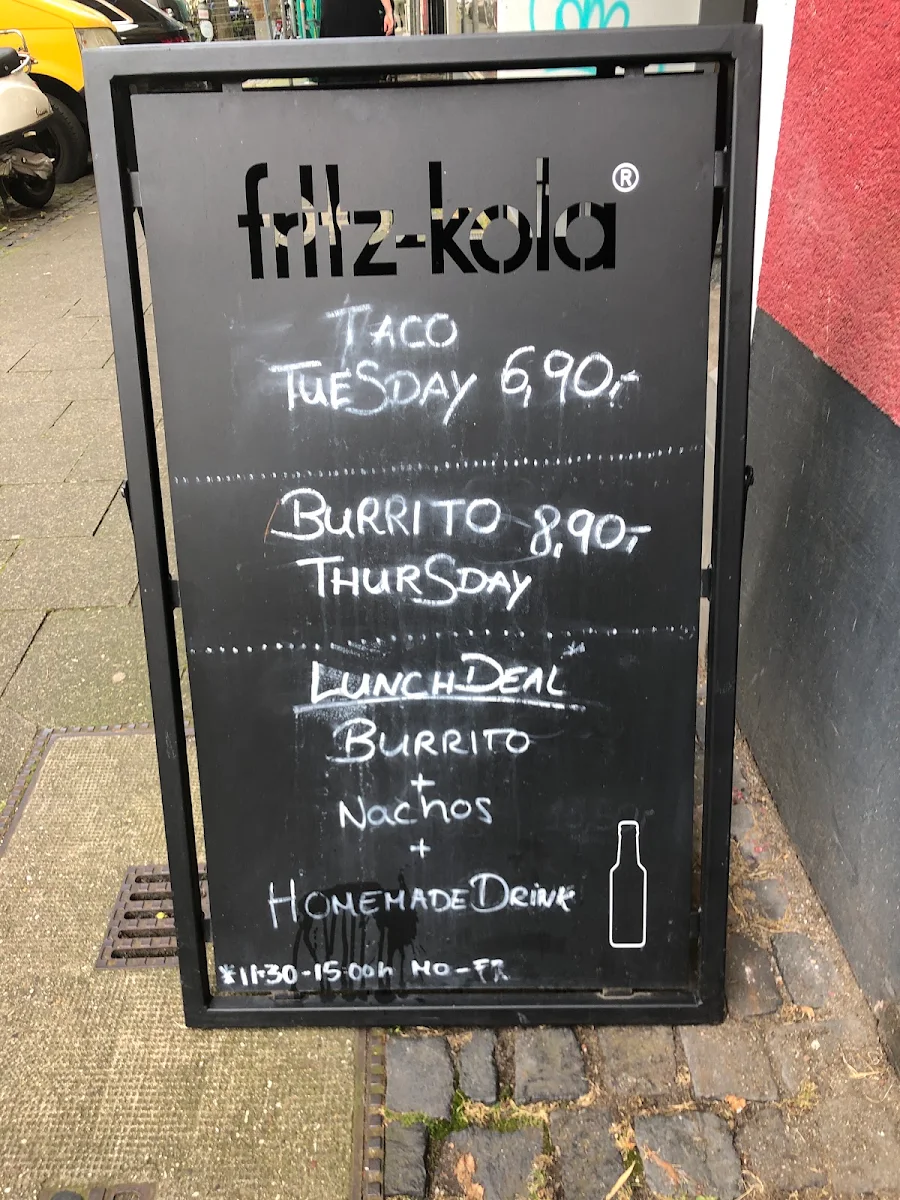 fritz-kola®
TACO
TUESDAY 6,90,-
BURRITO 8,90,-
THURSDAY
LUNCH DEAL*
BURRITO
+
Nachos
+
HOMEMADE DRINK
*11:30-15:00h MO-FR